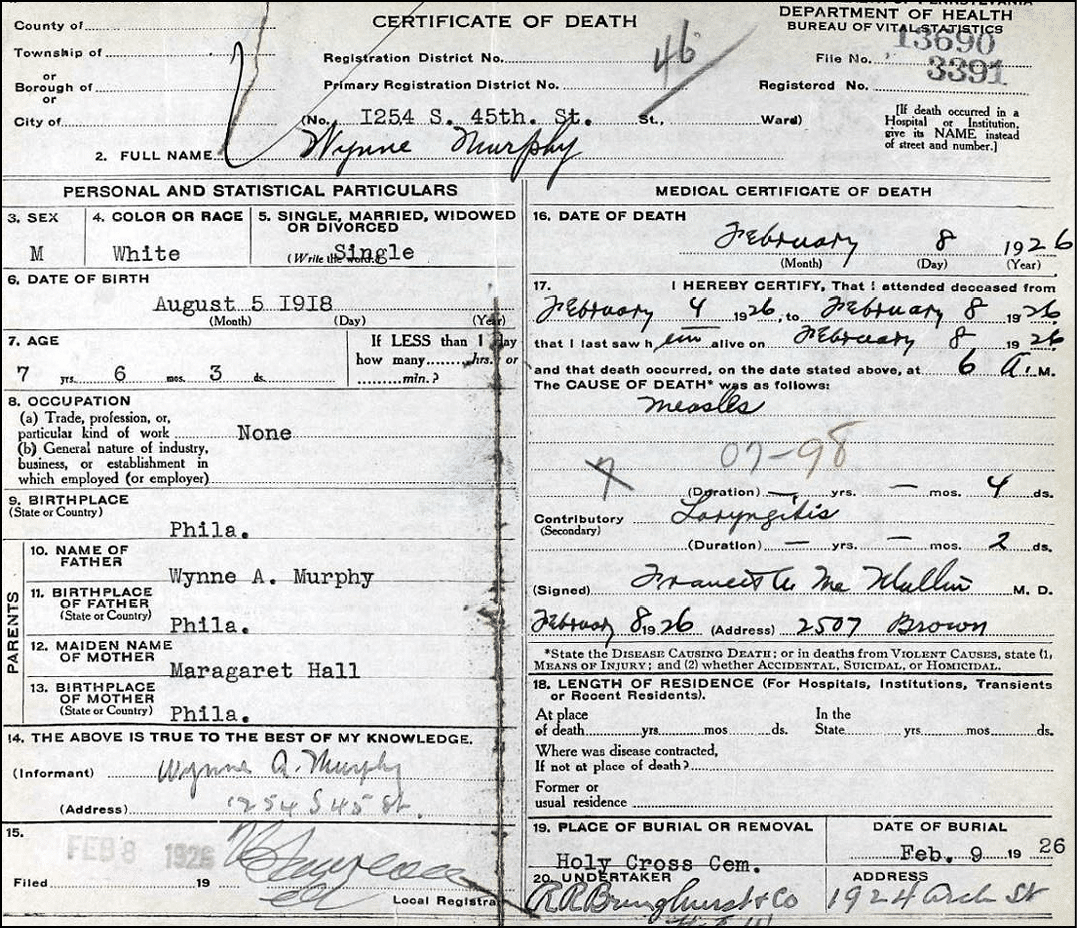 County of
CERTIFICATE OF DEATH
DEPARTMENT OF HEALTH
BUREAU OF VITAL STATISTICS
Township of
or
Borough of
or
City of
Registration District No.
Primary Registration District No.
46
File No. 13690
Registered No. 3391
(No. I254 S. 45th. St. St., Ward)
[If death occurred in a
Hospital or Institution,
give its NAME instead
of street and number.]
2. FULL NAME Wynne Murphy
PERSONAL AND STATISTICAL PARTICULARS
3. SEX
M
4. COLOR OR RACE
White
5. SINGLE, MARRIED, WIDOWED
OR DIVORCED
(Write the word.) Single
6. DATE OF BIRTH
August 5 I918
(Month) (Day) (Year)
7. AGE
7 yrs. 6 mos. 3 ds.
If LESS than 1 day
how many hrs. or
min.?
8. OCCUPATION
(a) Trade, profession, or,
particular kind of work None
(b) General nature of industry,
business, or establishment in
which employed (or employer)
9. BIRTHPLACE
(State or Country)
Phila.
PARENTS
10. NAME OF
FATHER
Wynne A. Murphy
11. BIRTHPLACE
OF FATHER
(State or Country)
Phila.
12. MAIDEN NAME
OF MOTHER
Maragaret Hall
13. BIRTHPLACE
OF MOTHER
(State or Country)
Phila.
14. THE ABOVE IS TRUE TO THE BEST OF MY KNOWLEDGE.
(Informant) Wynne A. Murphy
(Address) 1254 S 45 St.
15.
FEB 8 1926
Filed 19
Local Registrar
MEDICAL CERTIFICATE OF DEATH
16. DATE OF DEATH
February 8 1926
(Month) (Day) (Year)
17. I HEREBY CERTIFY, That I attended deceased from
February 4 1926, to February 8 1926
that I last saw h im alive on February 8 1926
and that death occurred, on the date stated above, at 6 A. M.
The CAUSE OF DEATH* was as follows:
Measles
07-98
7
(Duration) — yrs. — mos. 4 ds.
Contributory Laryngitis
(Secondary)
(Duration) — yrs. — mos. 2 ds.
(Signed) Francis A. McMullin M. D.
February 8 1926 (Address) 2507 Brown
*State the DISEASE CAUSING DEATH; or in deaths from VIOLENT CAUSES, state (1,
MEANS OF INJURY; and (2) whether ACCIDENTAL, SUICIDAL, or HOMICIDAL.
18. LENGTH OF RESIDENCE (For Hospitals, Institutions, Transients
or Recent Residents).
At place
of death yrs. mos ds.
In the
State yrs. mos ds.
Where was disease contracted,
If not at place of death?
Former or
usual residence
19. PLACE OF BURIAL OR REMOVAL
Holy Cross Cem.
DATE OF BURIAL
Feb. 9 19 26
20. UNDERTAKER
R R Bringhurst & Co
ADDRESS
1924 Arch St